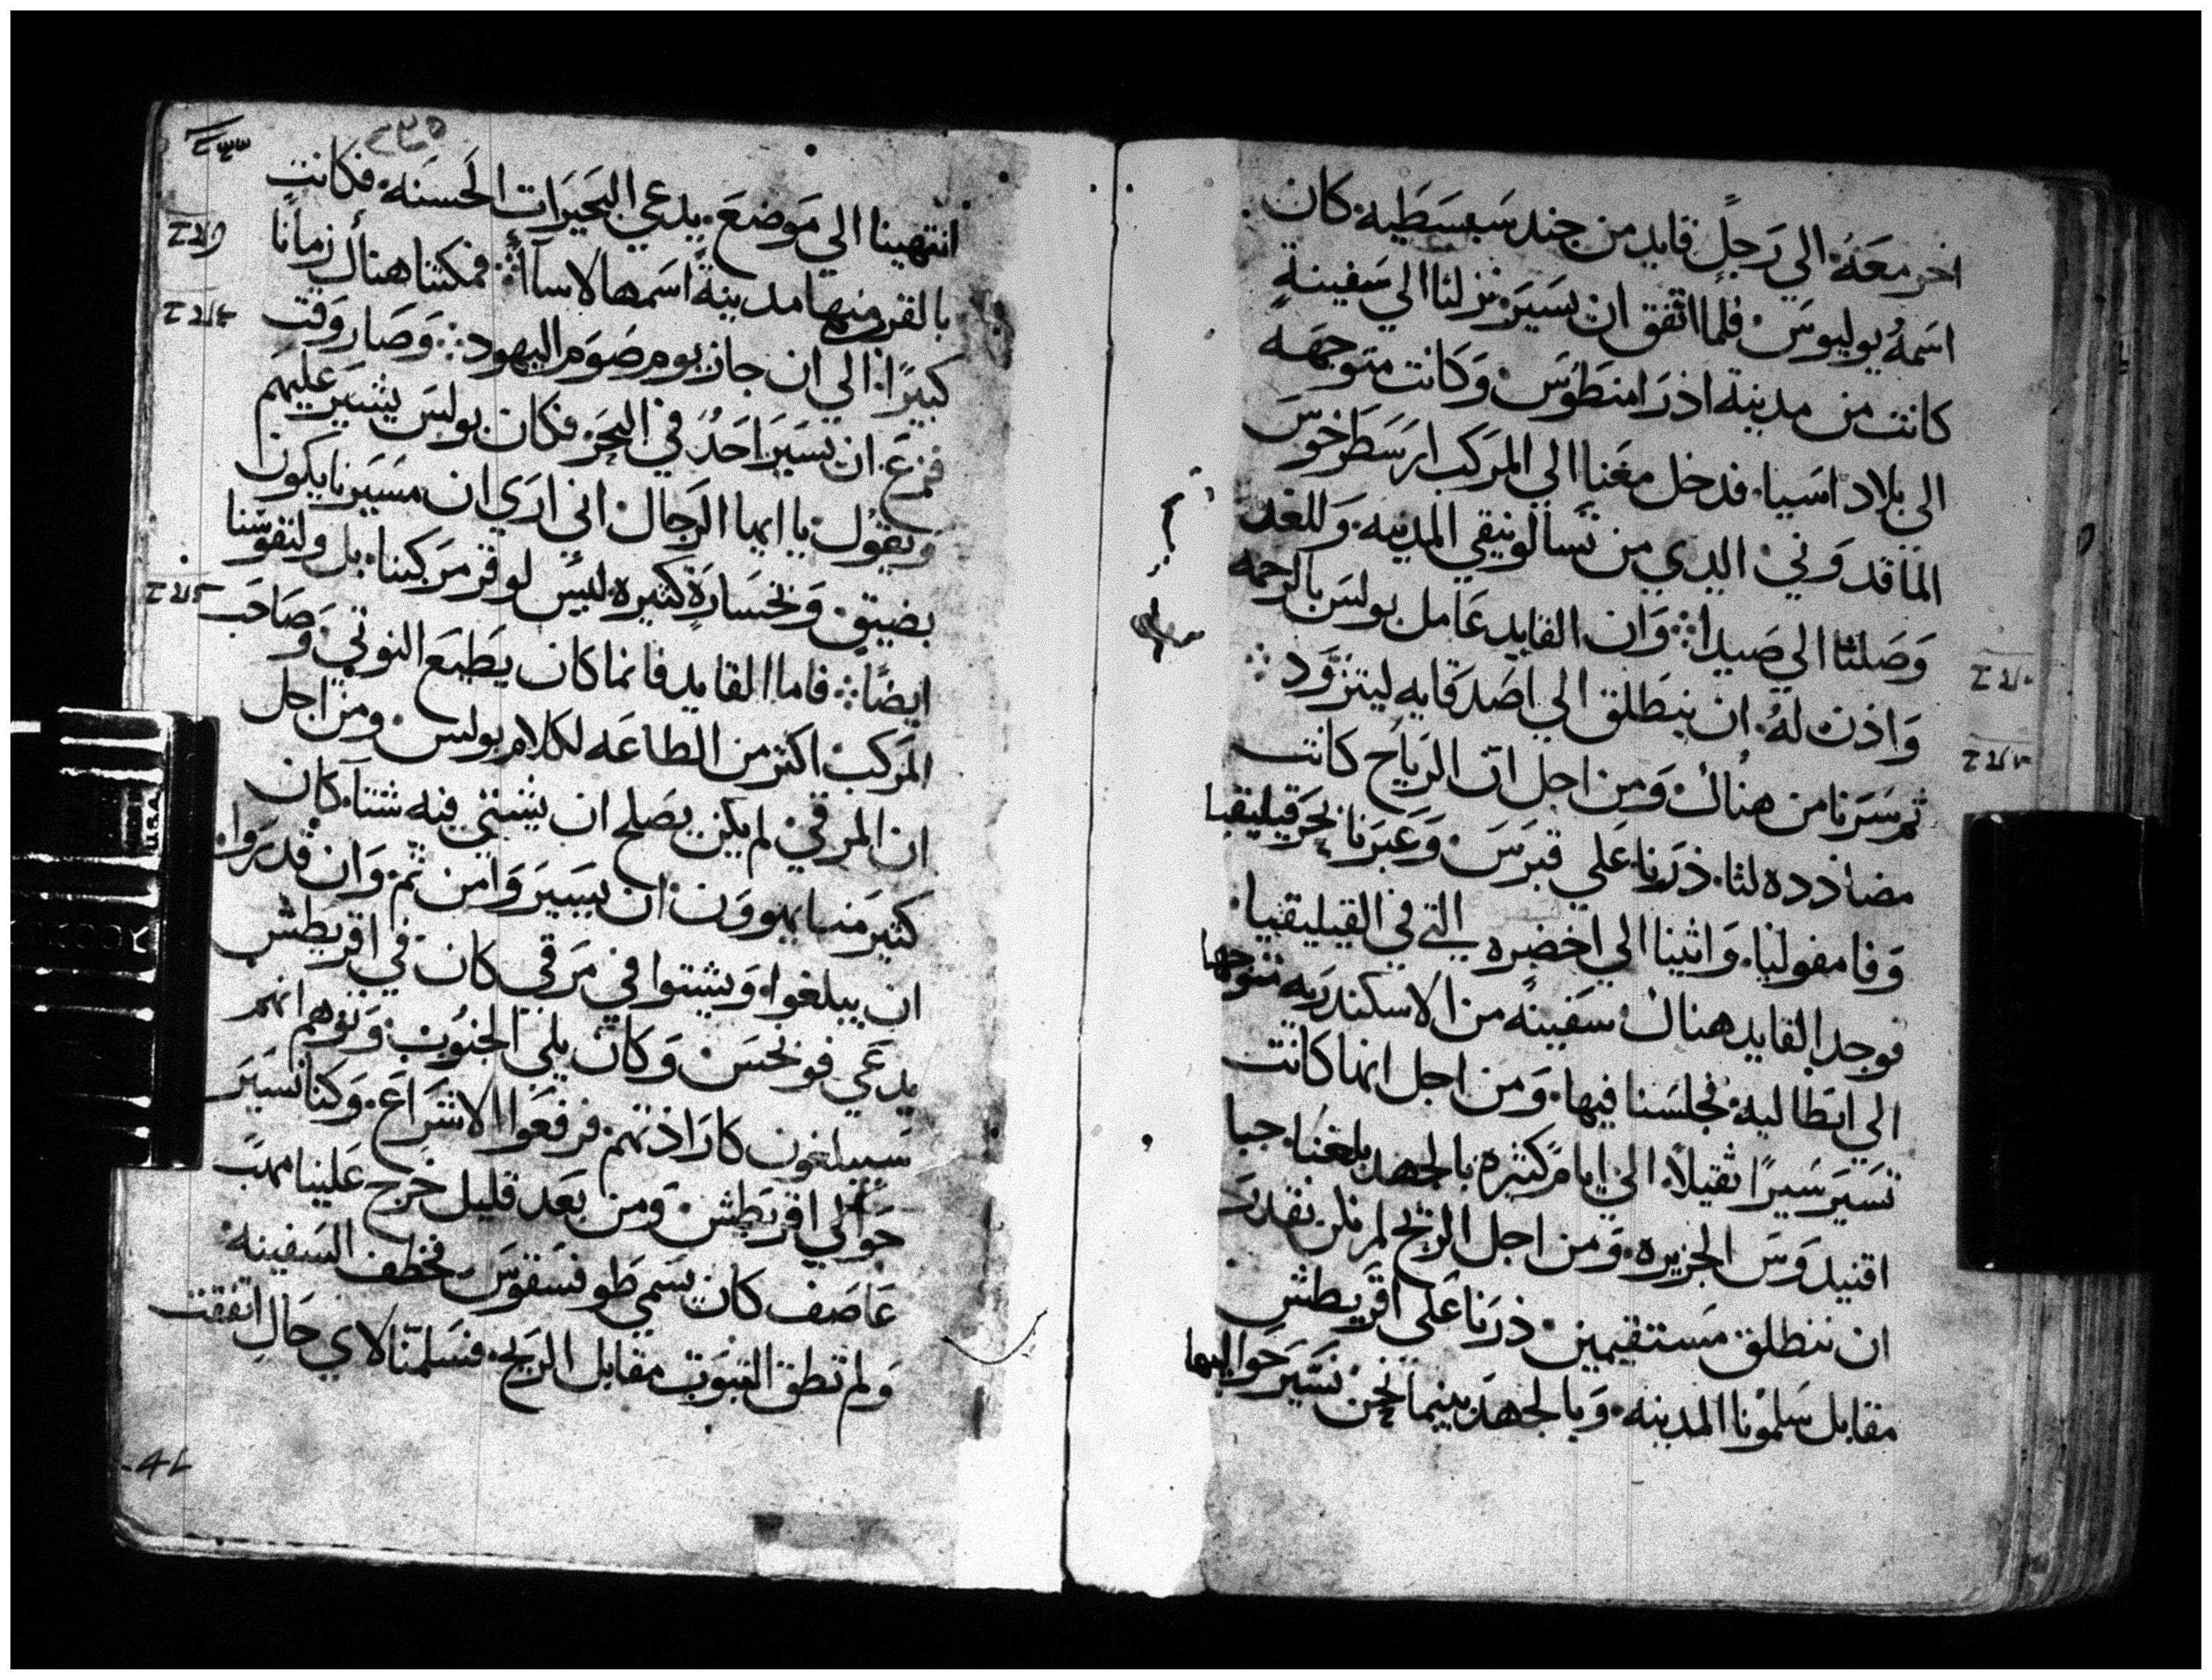 اخر معَهُ الي رَجلٍ قايد من جند سَبسَطيه كان
اسَمهُ يوليوسَ فلما اتفق ان نسَيرَ نزلنا الي سَفينةٍ
كانت من مدينة اذرَامنطوُسَ وَكَانت متوجهه
الى بلاد اسَيا فدخل معَنا الي المرَكب ارسَطرَخوسَ
الماقدوَني الدي من تسَالونيقي المدينه وَللغد
وَصَلنا الي صَيدا وَان القايد عَامل بولسَ بالرحمه
وَاذن لهُ ان ينطَلق الي اصَدقايه ليتزوَد
ثم سَرَنا من هناك وَمن اجل ان الريَاح كانت
مضاذده لنا درَنا عَلي قبرَسَ وَعَبرَنا بحرَ قيليقيا
وَفامفوليا وَاتينا الي اخضره التي في القيليقيا
فوجد القايد هناك سَفينه من الاسكندريه متوجها
الي ايطاليه فجلسَنا فيها وَمن اجل انها كانت
تسَيرَ سَيرًا ثقيلاً الي ايام كثيره بالجهد بلغنا جبا
اقنيدوَسَ الجزيره وَمن اجل الريح لم نكن نقدرَ
ان ننطلق مسَتقيمين درَنا عَلى اقريطش
مقابل سَلمونا المدينه وَبالجهد بينما نحن نسَيرَ حَواليها
٢٣٥
انتهينا الي مَوضعَ يدعي البَحيرَات الحَسَنه فكانت
بالقرب منها مدينةً اسَمها لاسآا فمكثنا هناك زمانًا
كبيرًا الي ان جاز يوم صَوم اليهود وَصَار وَقت
فزعَ ان نسَيرَ احَدُ في البحَر فكان بولسَ يشيَر عليهَم
وَيقوُل يا ايها الرَجال اني ارَي ان مسَيرنا يكون
بضيق وَبخسَارَةٍ كثيره ليسَ لوقر مرَكبنا بل ولنفوسَنا
ايضًا فاما القايد فانما كان يطَيعَ النوتي وَصَاحَب
المرَكب اكثر من الطاعَه لكلام بولس ومن اجل
ان المرقي لم يكن يصَلح ان يشتي فيه شتآ كان
كثيرَ منا يهووَن ان يسَيرَوَا من ثم وَان قدرَوا
ان يبلغوا وَيشتوا في مَرَقي كان في اقريطش
يدعَي فونخسَ وَكان يلي الجنوُب وَتوهم انهم
سَيبلغون كارَاذتهم فرفعَوا الاشرَاعَ وَكنا نسَيرَ
حَوالي اقرَيطَش وَمن بعَد قليل خرَج عَلينا مهبَ
عَاصَف كان يسَمي طَوفنسَقوسَ فخطف السَفينه
وَلم تطق الثبوَت مقابل الريَح فسَلمنا لاي حَالٍ اتفقت